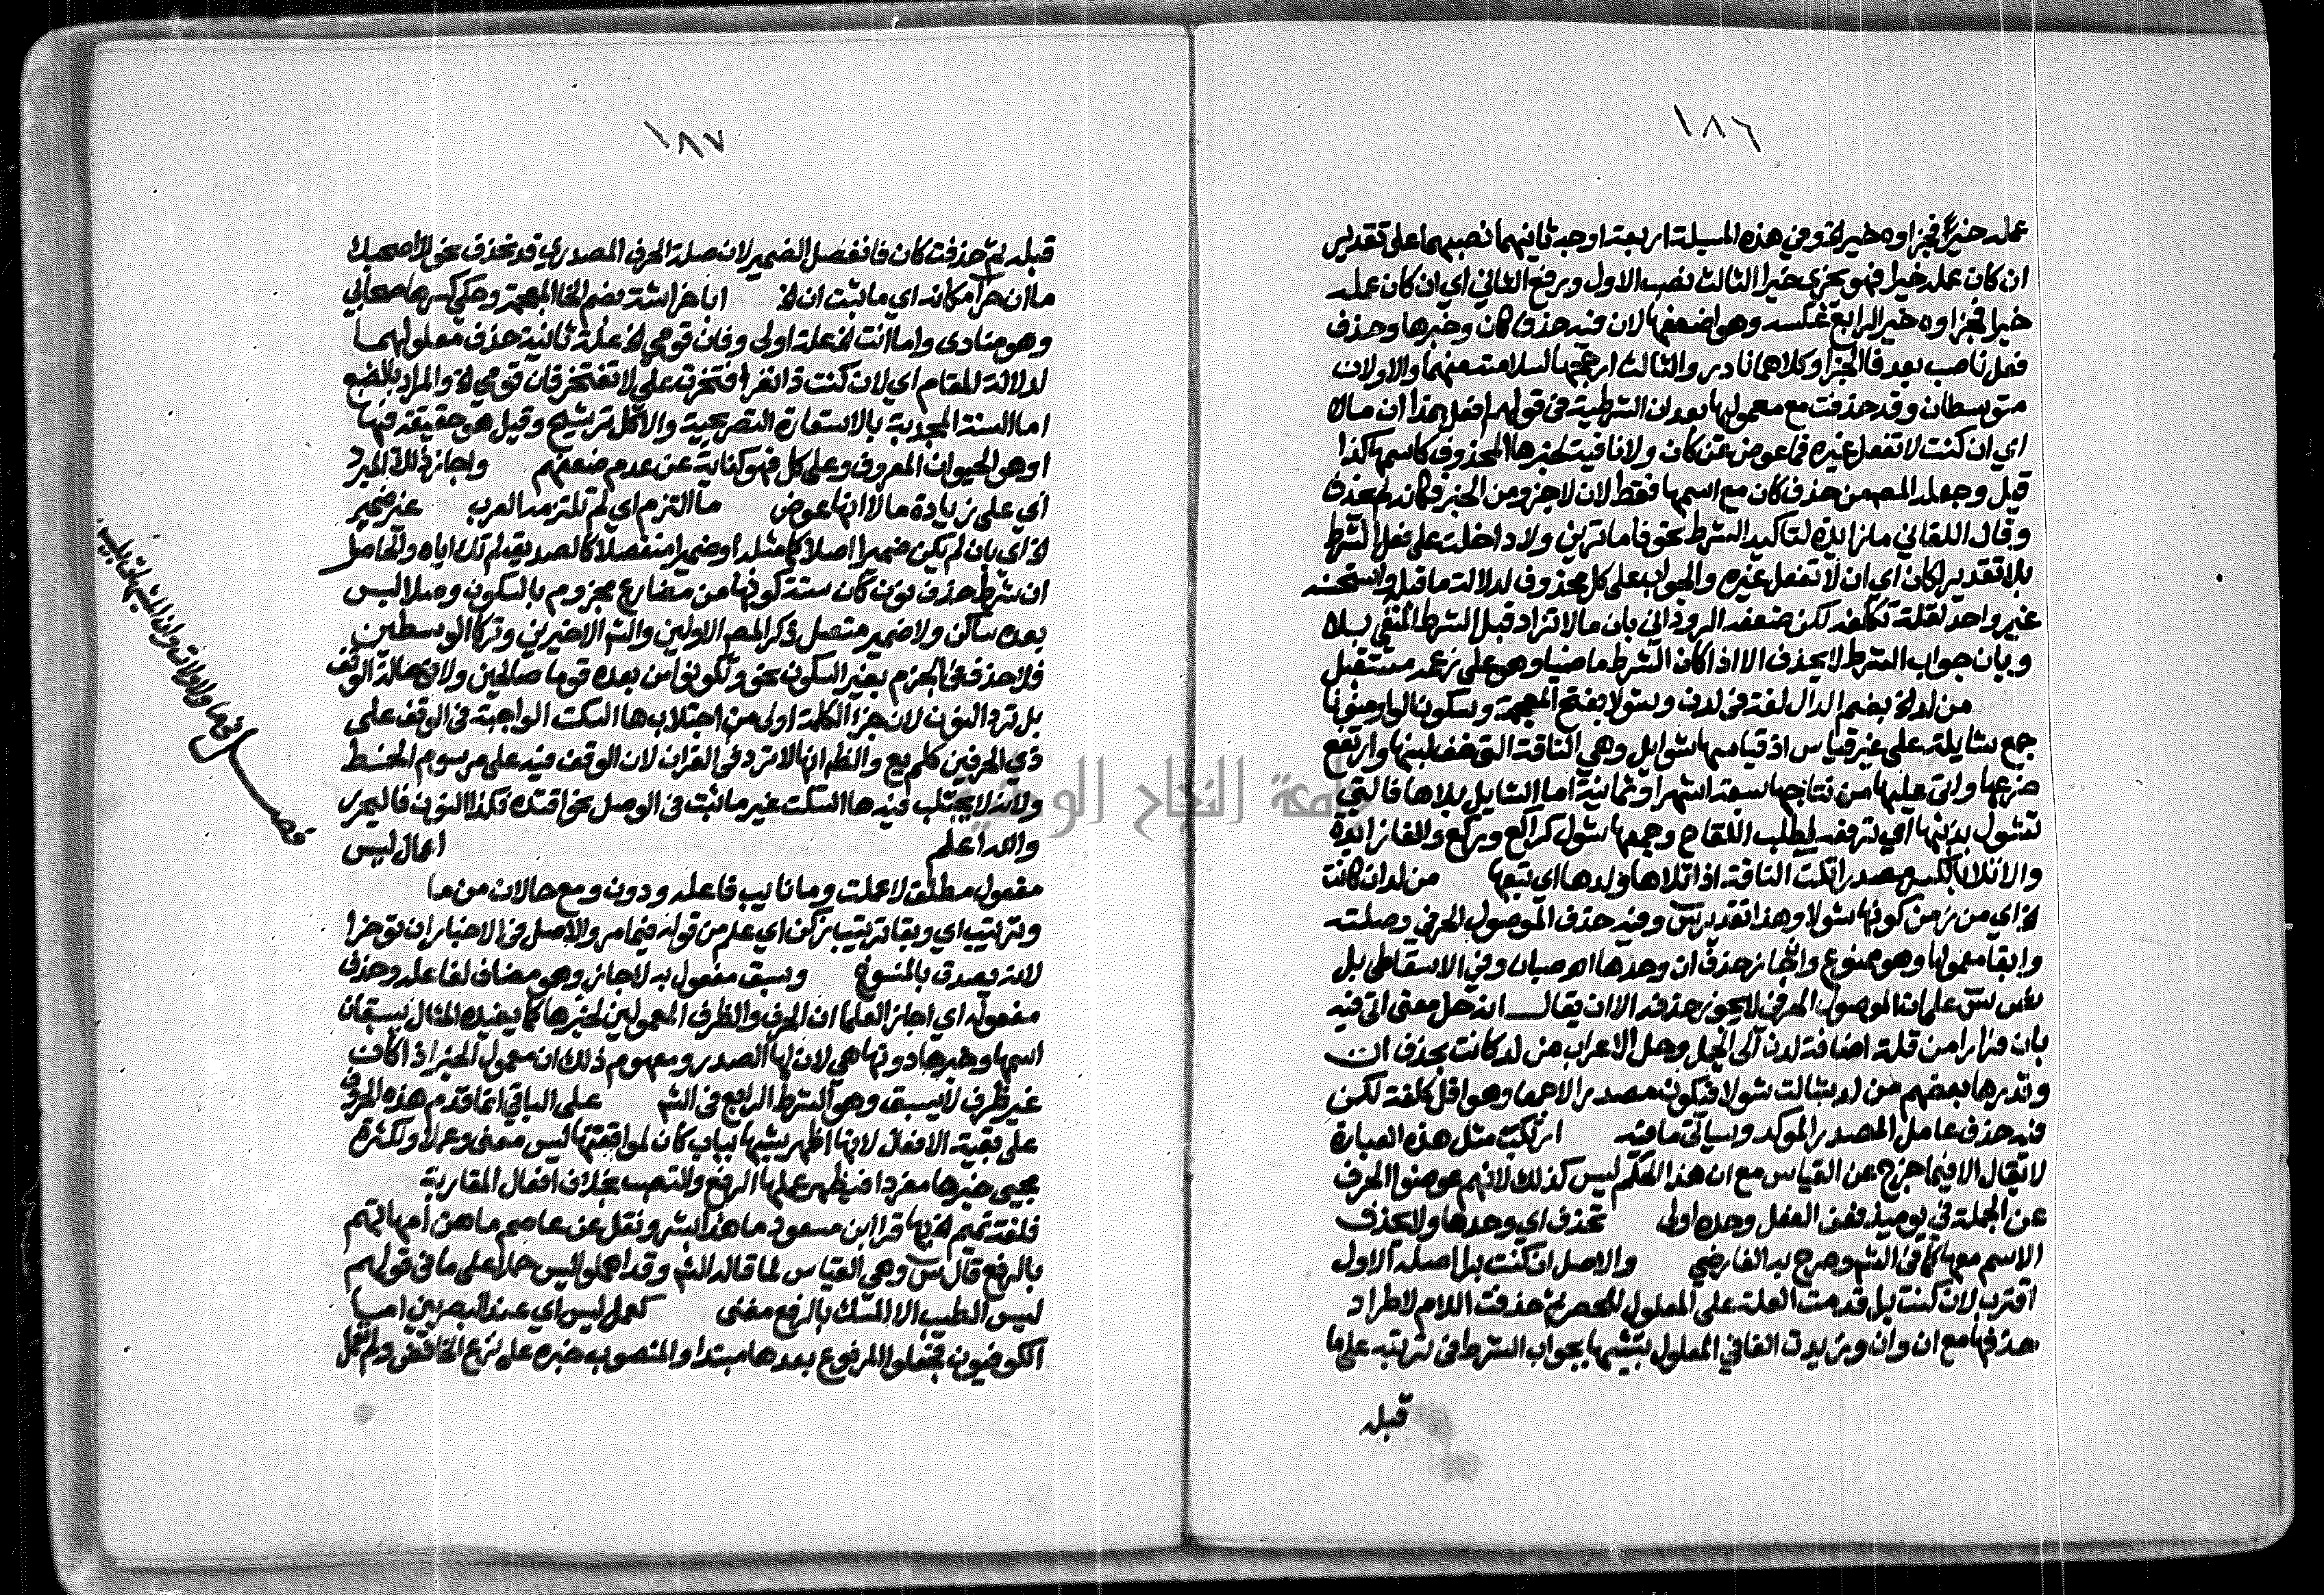 ١٨٦
عمله خيرا فجزاوه خير الخ وفي هذه المسيلة اربعة اوجه ثانيهما نصبهما على تقدير
ان كان عمله خيرا فهو يجزى خيرا الثالث نصب الاول ورفع الثاني اي ان كان عمله
خيرا فجزاوه خير الرابع عكسه وهو اضعفها لان فيه حذف كان وخبرها وحذف
فعل ناصب بعد فا الجزا وكلاهما نادر والثالث ارجحها لسلامته منهما والاولان
متوسطان وقد حذفت مع معموليها بعد ان الشرطية في قولهم افعل هذا ان مالا
اي ان كنت لا تفعل غيره فما عوض عن كان ولا نافية لخبرها المحذوف كاسمها كذا
قيل وجعله المصـ من حذف كان مع اسمها فقط لان لا جزو من الخبر فكانه لم يحذف
وقال اللقاني ما زايدة لتاكيد الشرط نحو فاما ترين ولا داخلة على فعل الشرط
بلا تقدير لكان اي ان لا تفعل غيره والجواب على كل محذوف لدلالة ما قبله واستحسنه
غير واحد لقلة تكلفه لكن ضعفه الروداني بان ما لا تزاد قبل الشرط المنفي بلا
وبان جواب الشرط لا يحذف الا اذا كان الشرط ماضيا وهو على زعمه مستقبل
من لد الخ بضم الدال لغة في لدن وشولا بفتح المعجمة وسكون الواو منونا
جمع شايلة على غير قياس اذ قياسها شوايل وهي الناقة التي خف لبنها وارتفع
ضرعها واتى عليها من نتاجها سبعة اشهر او ثمانية اما الشايل بلا ها فالتي
تشول بذنبها اي ترفعه لطلب اللقاح وجمعها شول كراكع وركع والفا زايدة
والاتلا بالكسر مصدر اتلت الناقة اذا تلاها ولدها اي تبعها من لد ان كانت
الخ اي من زمن كونها شولا وهذا تقدير س وفيه حذف الموصول الحرفي وصلته
وابقا معمولها وهو ممنوع والجايز حذف ان وحدها اهـ صبان وفي الاسقاطي بل
نص س على ان الموصول الحرفي لا يجوز حذفه الا ان يقال انه حل معنى اتى فيه
بان فرارا من قلة اضافة لدن الى الجمل وحل الاعراب من لد كانت بحذف ان
وقدرها بعضهم من لد شالت شولا فيكون مصدرا لا جمعا وهو اقل كلفة لكن
فيه حذف عامل المصدر الموكد وسياتي ما فيه ارتكب مثل هذه العبارة
لا تقال الا فيما خرج عن القياس مع ان هذا الحكم ليس كذلك لانهم عوضوا الحرف
عن الجملة في يوميذ فعن الفعل وحده اولى تحذف اي وحدها ولا يحذف
الاسم معها كما في الشـ وصرح به الفارضي والاصل ان كنت برا اصله الاول
اقترب لان كنت بل قدمت العلة على المعلول للحصر ثم حذفت اللام لاطراد
حذفها مع ان وان وزيدت الفا في المعلول تشبيها بجواب الشرط في ترتبه على ما
قبله
١٨٧
قبله ثم حذفت كان فانفصل الضمير لان صلة الحرف المصدري قد تحذف نحو لا اصحبك
ما ان حرا مكانه اي ما ثبت ان الخ ابا خراشة بضم الخا المعجمة وحكي كسرها صحابي
وهو منادى واما انت الخ علة اولى وفان قومي الخ علة ثانية حذف معلولهما
لدلالة المقام اي لان كنت ذا نفر افتخرت علي لا تفتخر فان قومي الخ والمراد بالضبع
اما السنة المجدبة بالاستعارة التصريحية والاكل ترشيح وقيل هو حقيقة فيها
او هو الحيوان المعروف وعلى كل فهو كناية عن عدم ضعفهم واجاز ذلك المبرد
اي على زيادة ما لا انها عوض ما التزم اي لم تلتزمه العرب غير ضمير
الخ اي بان لم يكن ضميرا اصلا كما مثله او ضميرا منفصلا كالصديق لم تك اياه والحاصل
ان شرط حذف نون كان ستة كونها من مضارع مجزوم بالسكون وصلا ليس
بعده ساكن ولا ضمير متصل ذكر المصـ الاولين والشـ الاخيرين وتركا الوسطين
فلا حذف في الجزم بغير السكون نحو وتكونوا من بعده قوما صالحين ولا في حالة الوقف
بل ترد النون لان جزا الكلمة اولى من اجتلاب ها السكت الواجبة في الوقف على
ذي الحرفين كلم يع والظـ انها لا ترد في القران لان الوقف فيه على مرسوم الخط
ولانه لا يجتلب فيه ها السكت غير ما ثبت في الوصل نحو اقتده فكذا النون فاليحرر
والله اعلم اعمال ليس
مفعول مطلق لاعملت وما نايب فاعله ودون ومع حالان من ما
وترتيب اي وبقا ترتيب زكن اي علم من قوله فيما مر والاصل في الاخبار ان توخرا
لانه يصدق بالمنسوخ وسبق مفعول به لاجاز وهو مضاف لفاعله وحذف
مفعوله اي اجاز العلما ان الحرف والظرف المعمولين لخبرها كما يفيده المثال يسبقان
اسمها وخبرها دونها هي لان لها الصدر ومفهوم ذلك ان معمول الخبر اذا كان
غير ظرف لا يسبق وهو الشرط الرابع في الشـ على الباقي انما قدم هذه الحروف
على بقية الافعال لانها اظهر شبها بباب كان لموافقتها ليس معنى وعملا ولكثرة
مجيي خبرها مفردا فيظهر عملها الرفع والنصب بخلاف افعال المقاربة
فلغة تميم الخ بها قرا ابن مسعود ما هذا بشر ونقل عن عاصم ما هن امهاتهم
بالرفع قال س وهي القياس لما قاله الشـ وقد اهملوا ليس حملا على ما في قولهم
ليس الطيب الا المسك بالرفع مغني كعمل ليس اي عند البصريين اما
الكوفيون فجعلوا المرفوع بعدها مبتدا والمنصوب خبره على نزع الخافض ولم تعمل
فصـــل في ما ولا ولات وان المشبهات بليس
جامعة النجاح الوطنية